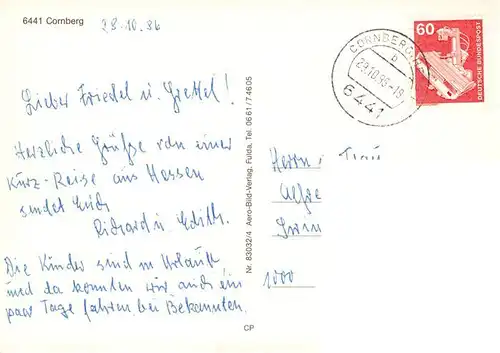 6441 Cornberg
28.10.86
Lieber Friedel u. Gretel!
Herzliche Grüße von einer
Kurz-Reise aus Hessen
sendet Euch
Richard u. Edith.
Die Kinder sind in Urlaub
und da konnten wir auch ein
paar Tage fahren bei Bekannten.
CP
Nr. 83032/4 Aero-Bild-Verlag, Fulda, Tel. 06 61 / 7 46 05
CORNBERG
b
29.10.86-18
6441
60
DEUTSCHE BUNDESPOST
Herrn
1000